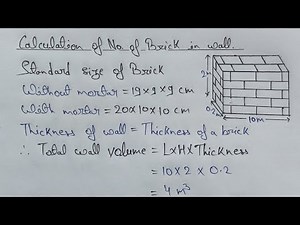 Calculation of No. of Brick in wall.
Standard size of Brick
Without mortar = 19×9×9 cm
With mortar = 20×10×10 cm
Thickness of wall = Thickness of a brick
∴ Total wall volume = L×H×Thickness
= 10×2×0.2
= 4 m³
2m
0.2
10m